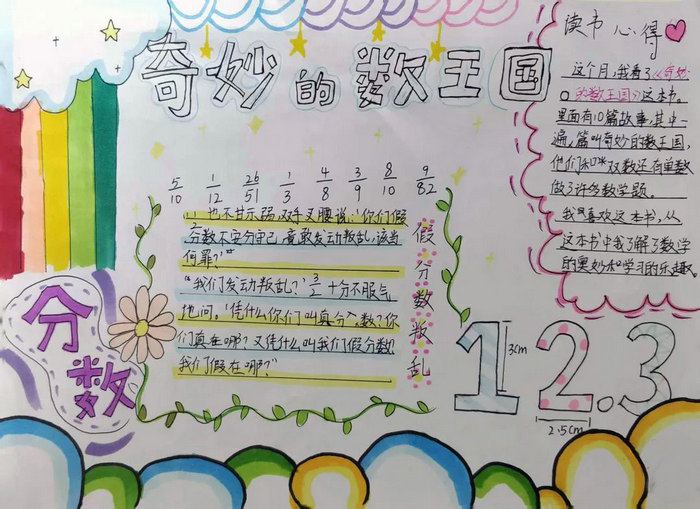 奇妙的数王国
读书心得
这个月,我看了《奇妙
的数王国》这本书。
里面有10篇故事,其中一
遍,篇叫奇妙的数王国,
他们和双数还有单数
做了许多数学题。
我喜欢这本书,从
这本书中我了解了数学
的奥妙和学习的乐趣
5/10 1/12 26/51 1/3 4/8 3/9 8/10 9/82
也不甘示弱,双手叉腰说:“你们假
分数不安分守己,竟敢发动叛乱,该当
何罪?”
“我们发动叛乱?”3/2十分不服气
地问。“凭什么你们叫真分数?你
们真在哪?又凭什么叫我们假分数?
我们假在哪?”
假分数叛乱
分数
1 2.3
3cm
2.5cm